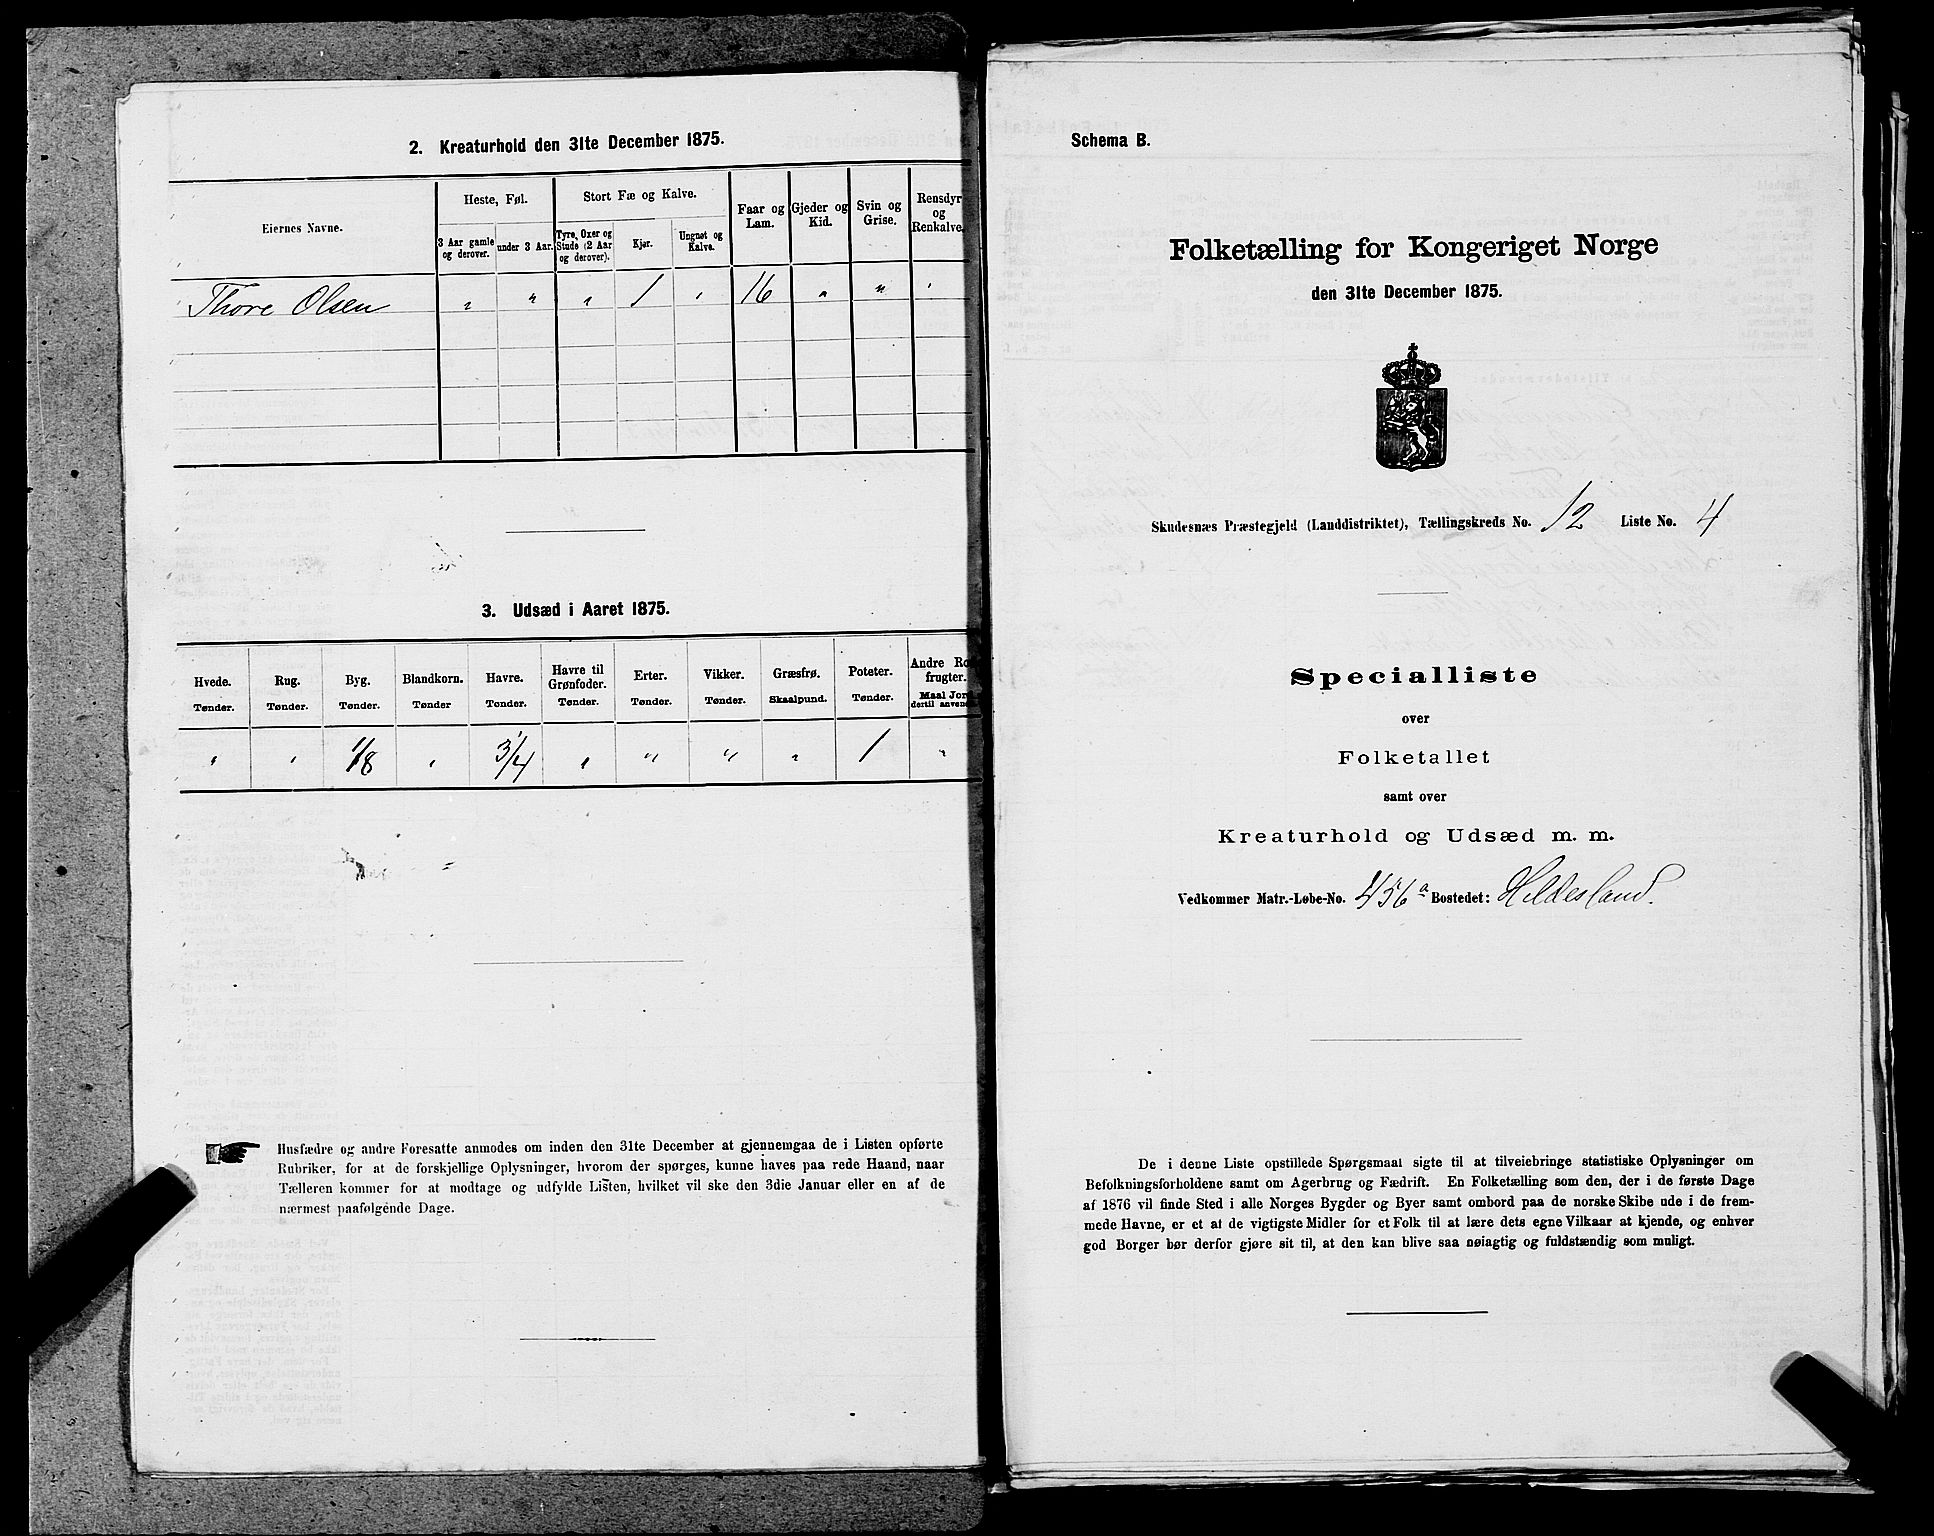 2. Kreaturhold den 31te December 1875.
Eiernes Navne.
Heste, Føl.
Stort Fæ og Kalve.
Faar og Lam.
Gjeder og Kid.
Svin og Grise.
Rensdyr og Renkalve.
3 Aar gamle og derover.
under 3 Aar.
Tyre, Oxer og Stude (2 Aar og derover).
Kjør.
Ungnøt og Kalve.
Thore Olsen " " " 1 " 16 " " "
3. Udsæd i Aaret 1875.
Hvede. Rug. Byg. Blandkorn. Havre. Havre til Grønfoder. Erter. Vikker. Græsfrø. Poteter. Andre Ro frugter.
Tønder. Tønder. Tønder. Tønder Tønder. Tønder. Tønder. Tønder. Skaalpund. Tønder. Maal Jord dertil anvend
" " 1/8 " 3/4 " " " " 1 "
Husfædre og andre Foresatte anmodes om inden den 31te December at gjennemgaa de i Listen opførte
Rubriker, for at de forskjellige Oplysninger, hvorom der spørges, kunne haves paa rede Haand, naar
Tælleren kommer for at modtage og udfylde Listen, hvilket vil ske den 3die Januar eller en af de
nærmest paafølgende Dage.
Schema B.
Folketælling for Kongeriget Norge
den 31te December 1875.
Skudesnæs Præstegjeld (Landdistriktet), Tællingskreds No. 12 Liste No. 4
Specialliste
over
Folketallet
samt over
Kreaturhold og Udsæd m. m.
Vedkommer Matr.-Løbe-No. 456a Bostedet: Hildesland.
De i denne Liste opstillede Spørgsmaal sigte til at tilveiebringe statistiske Oplysninger om
Befolkningsforholdene samt om Agerbrug og Fædrift. En Folketælling som den, der i de første Dage
af 1876 vil finde Sted i alle Norges Bygder og Byer samt ombord paa de norske Skibe ude i de frem-
mede Havne, er et af de vigtigste Midler for et Folk til at lære dets egne Vilkaar at kjende, og enhver
god Borger bør derfor gjøre sit til, at den kan blive saa nøiagtig og fuldstændig som muligt.